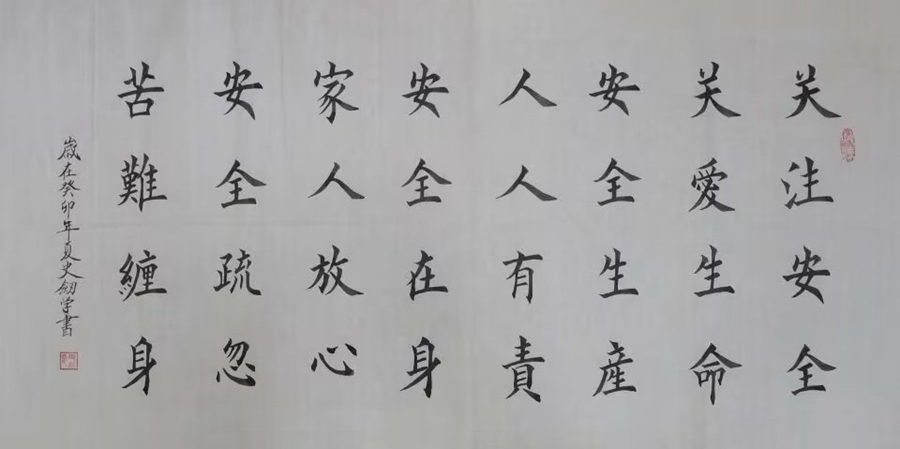 关注安全
关爱生命
安全生産
人人有責
安全在身
家人放心
安全疏忽
苦難纏身
歲在癸卯年夏史劒学書